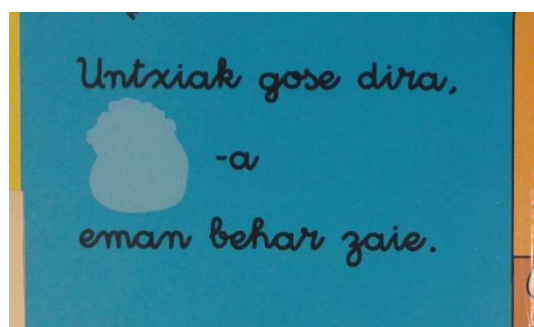 Untxiak gose dira,
-a
eman behar zaie.